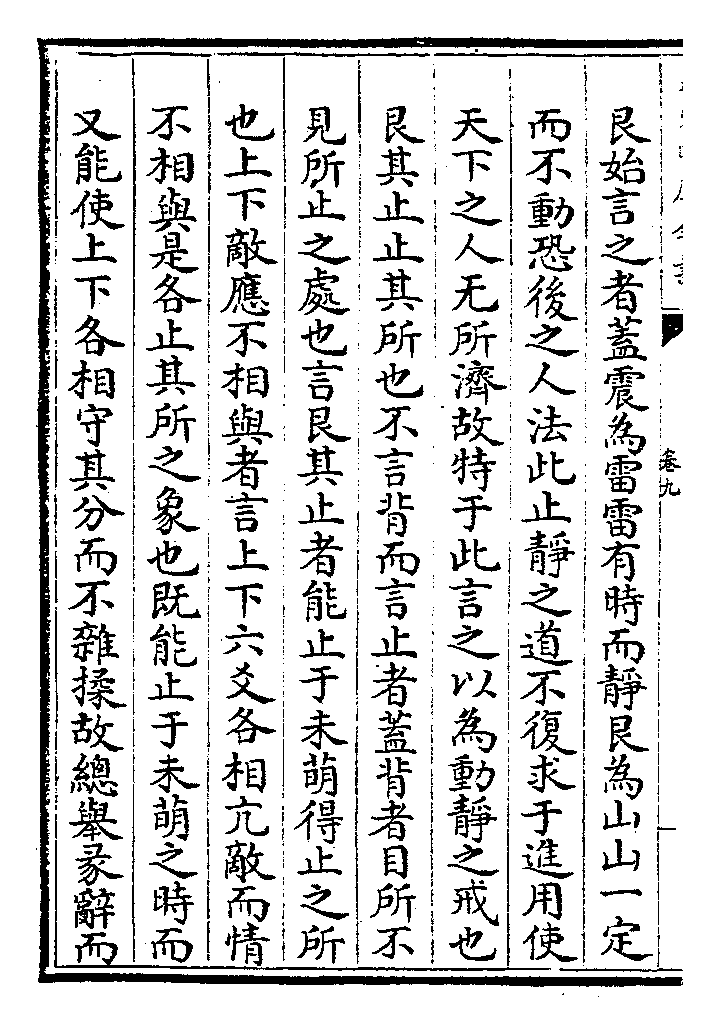 艮始言之者蓋震為雷雷有時而靜艮為山山一定
而不動恐後之人法此止靜之道不復求于進用使
天下之人无所濟故特于此言之以為動靜之戒也
艮其止止其所也不言背而言止者蓋背者目所不
見所止之處也言艮其止者能止于未萌得止之所
也上下敵應不相與者言上下六爻各相亢敵而情
不相與是各止其所之象也既能止于未萌之時而
又能使上下各相守其分而不雜揉故總舉彖辭而
卷九